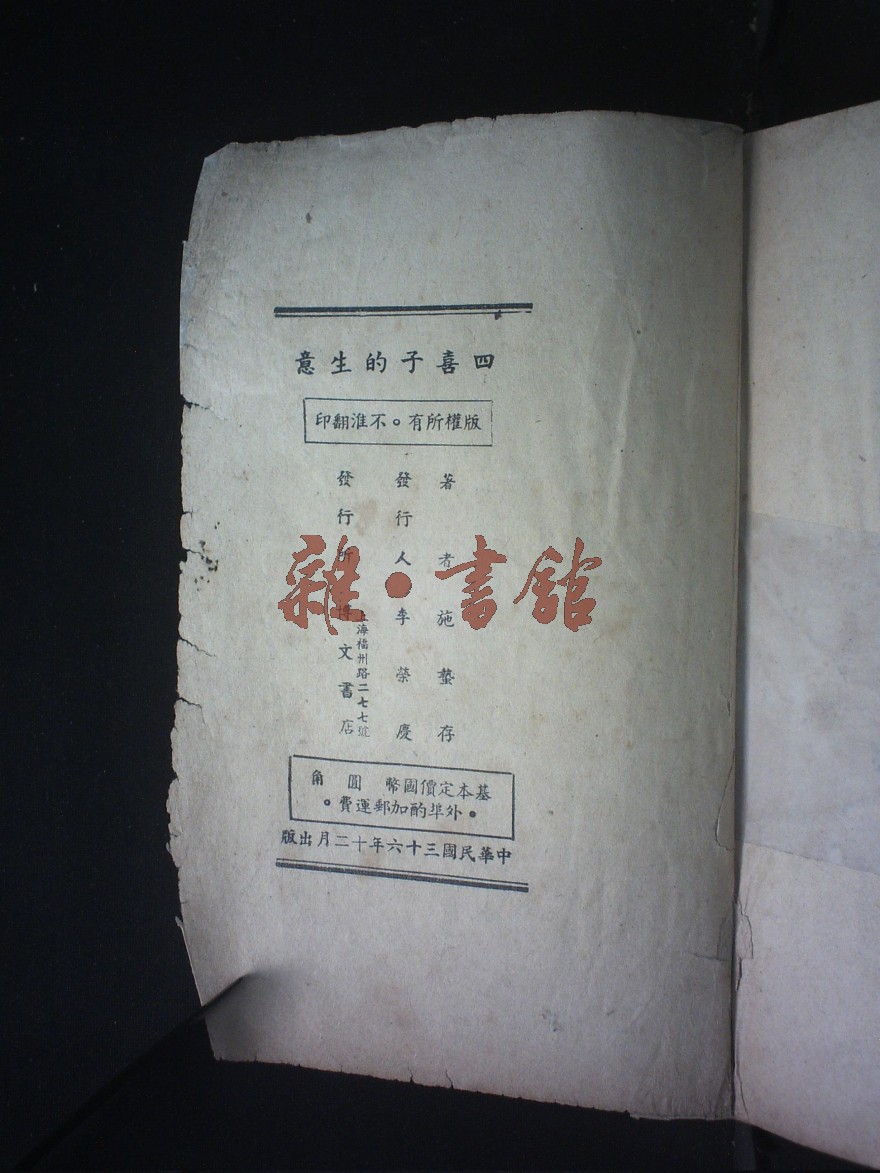 四喜子的生意
版權所有。不准翻印
著者施蟄存
發行人李榮慶
發行所博文書店
上海福州路二七七號
基本定價國幣 圓 角
。外埠酌加郵運費。
中華民國三十六年十二月出版
雜·書館